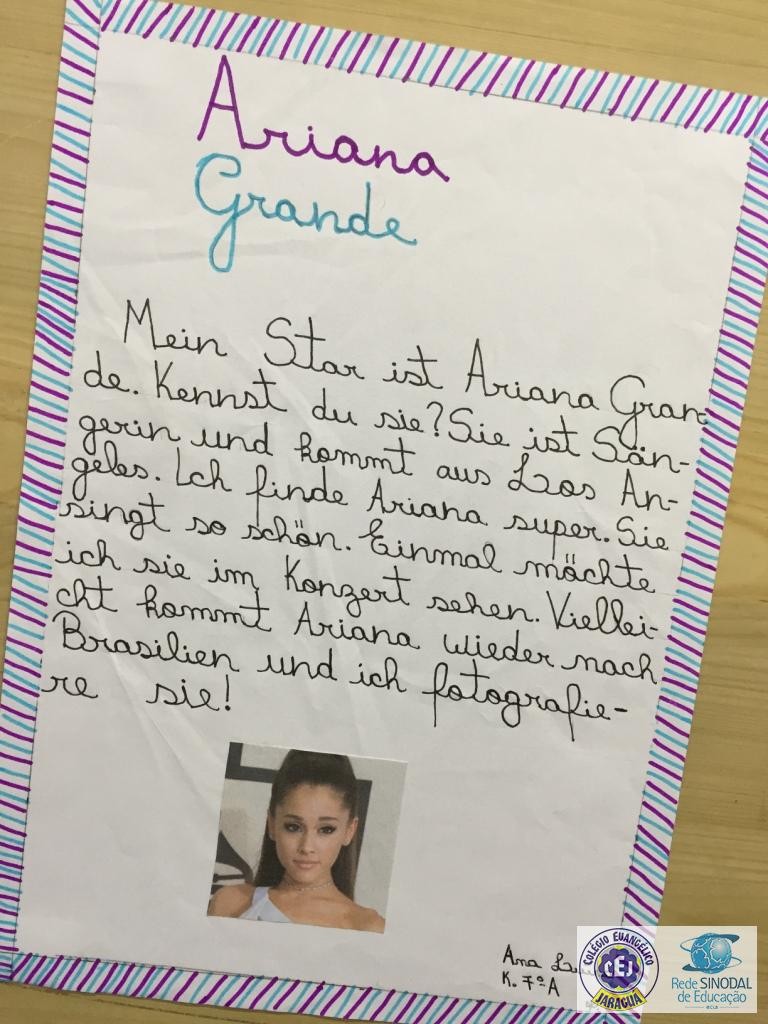 Ariana
Grande
Mein Star ist Ariana Gran-
de. Kennst du sie? Sie ist Sän-
gerin und kommt aus Los An-
geles. Ich finde Ariana super. Sie
singt so schön. Einmal möchte
ich sie im Konzert sehen. Viellei-
cht kommt Ariana wieder nach
Brasilien und ich fotografie-
re sie!
Ana
K. 7ºA
COLÉGIO EVANGÉLICO
CEJ
JARAGUÁ
Rede SINODAL
de Educação